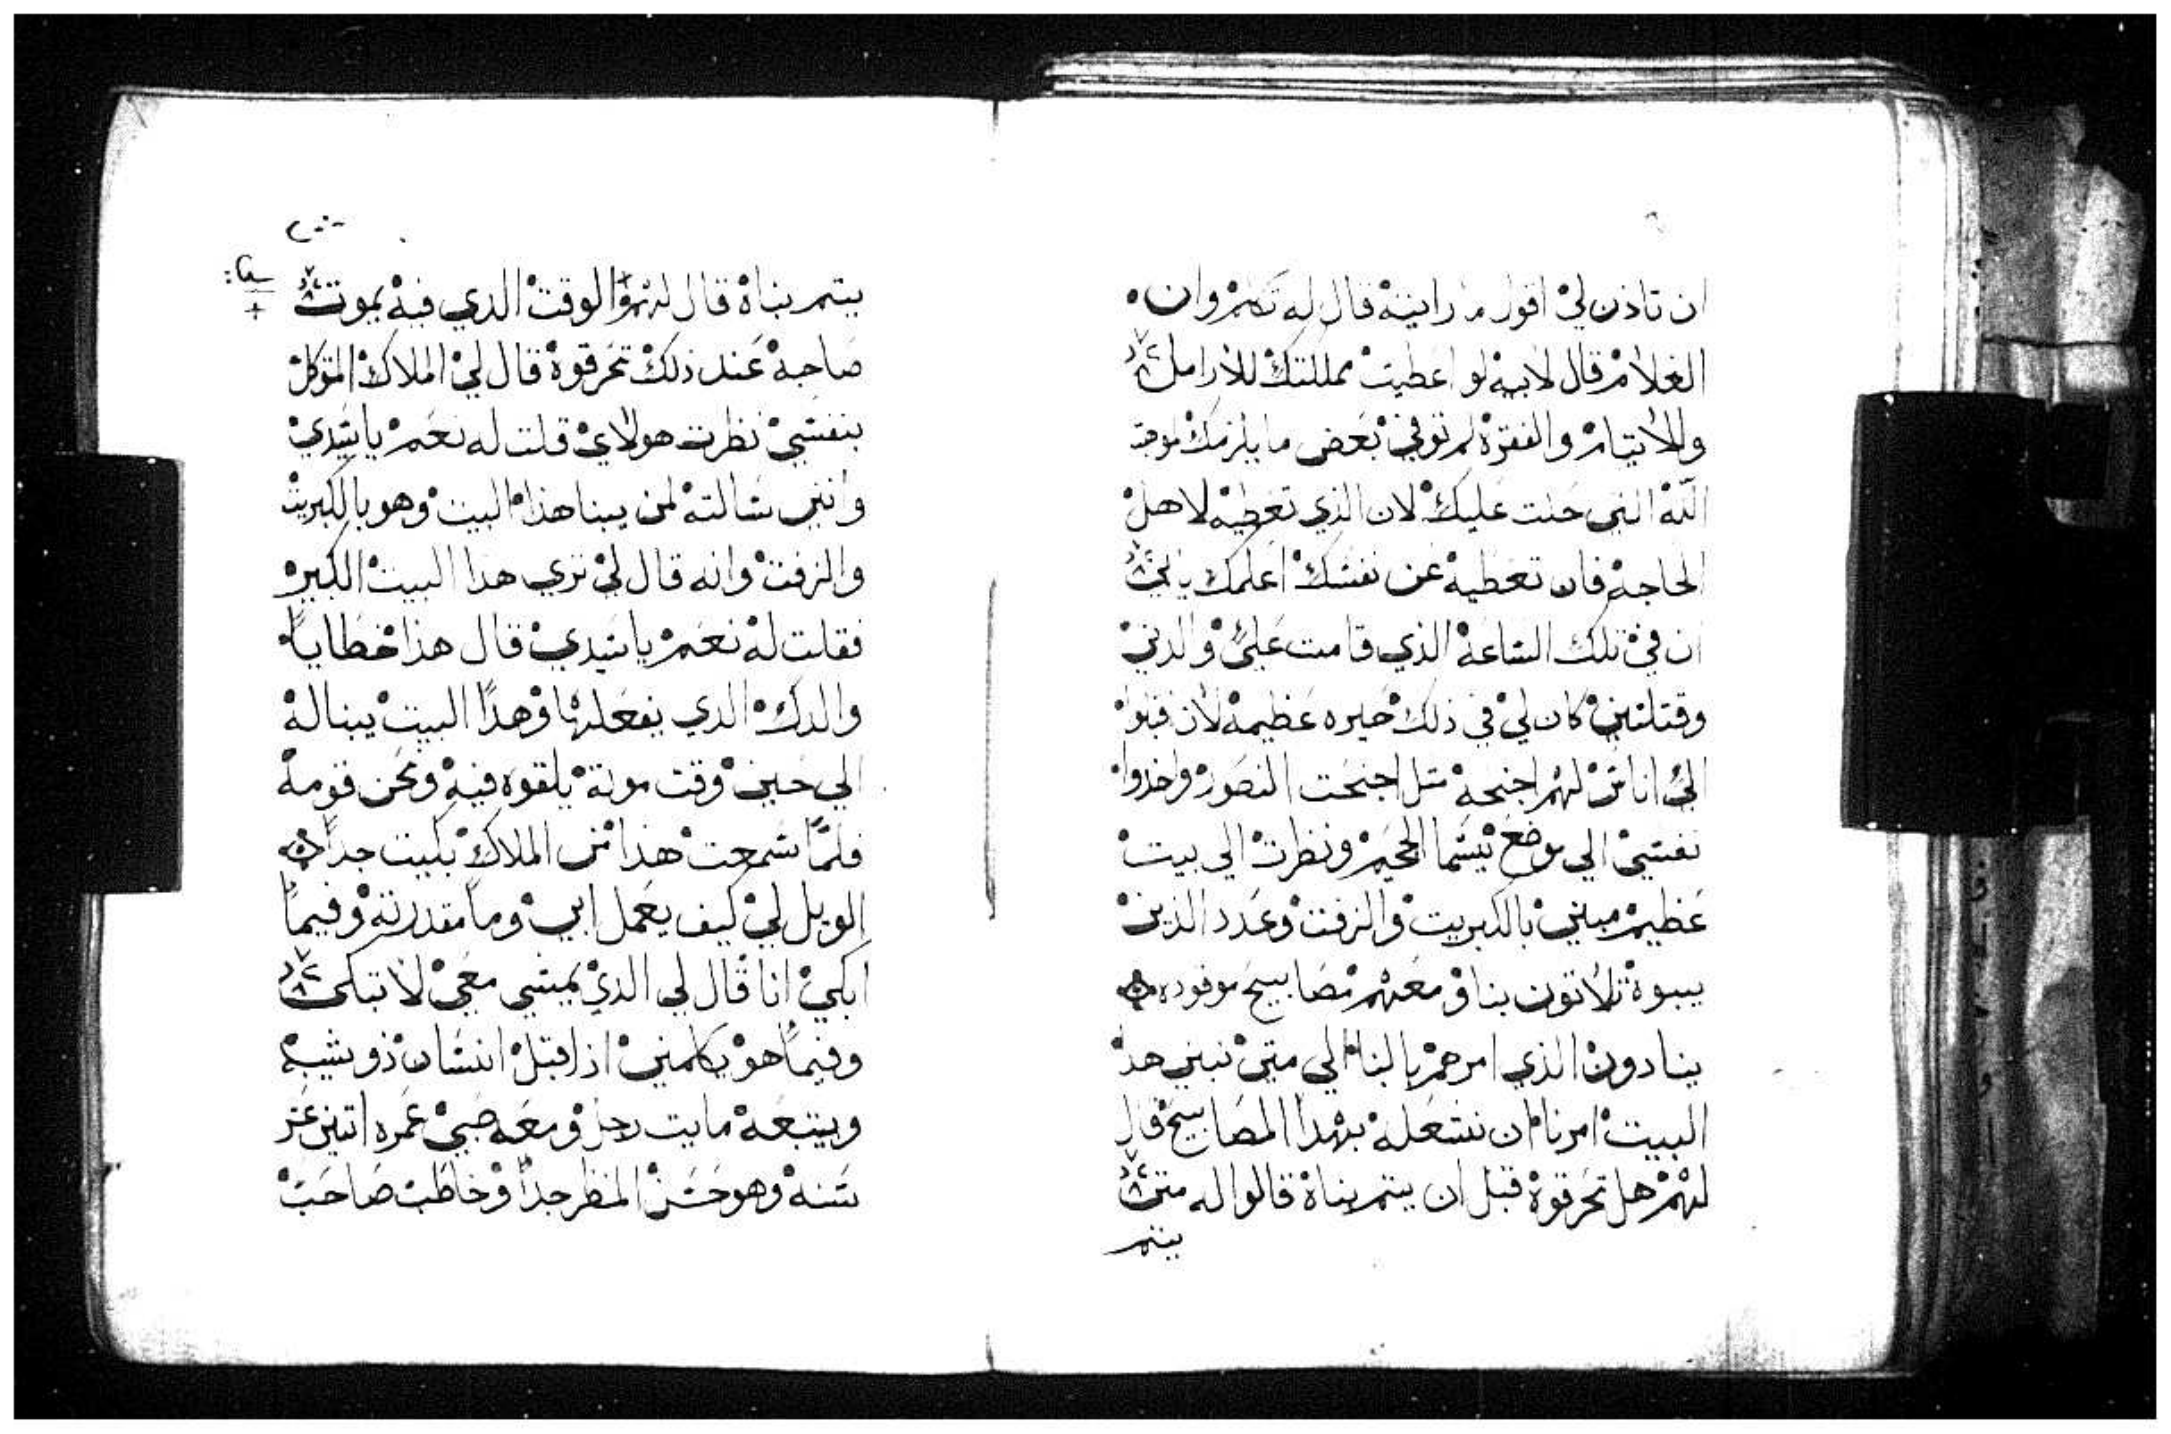 ان تاذن لي اقول ما رايته قال له تكلم وان
الغلام قال لابيه لو اعطيت مملكتك للارامل
وللايتام والفقرة لم توفي بعض ما يلزمك لموهبة
الله التي حلت عليك لان الذي تعطيه لاهل
الحاجة فان تعطيه عن نفسك اعلمك يا ابي
ان في تلك الساعة الذي قامت علي والدتي
وقتلتني كان لي في ذلك خيره عظيمة لان قبلوا
الي اناس لهم اجنحة متل اجنحت النصور واخدوا
نفسي الي موضع يسما الجحيم ونظرت الي بيت
عظيم مبني بالكبريت والزفت وعدد الذين
يبنوة تلاتون بنا ومعهم مصابيح موقوده
ينادون الذي امرهم بالبنا الي متي نبني هدا
البيت امرنا ان نشعله بهدا المصابيح قال
لهم هل تحرقوة قبل ان يتم بناة قالوا له متي
يتم
يتم بناة قال لهم الوقت الدي فية يموت
صاحبة عند ذلك تحرقوة قال لي الملاك الموكل
بنفسي نظرت هولاي قلت له نعم يا سيدي
وانني سالته لمن يبنا هذا البيت وهو بالكبريت
والزفت وانه قال لي تري هدا البيت الكبير
فقلت له نعم يا سيدي قال هذا خطايا
والدك الدي يفعلها وهدا البيت يبنا له
الي حين وقت موتة يلقوه فية ونحن قومه
فلما سمعت هذا من الملاك بكيت جدا
الويل لي كيف يعمل ابي وما مقدرته وفيما
ابكي انا قال لي الذي يمشي معي لا تبكي
وفيما هو يكلمني اذ اقبل انسان ذو شيبه
ويتبعه مايت رجل ومعه صبي عمره اتني عشر
سنة وهو حسن المنظر جدا وخاطب صاحب